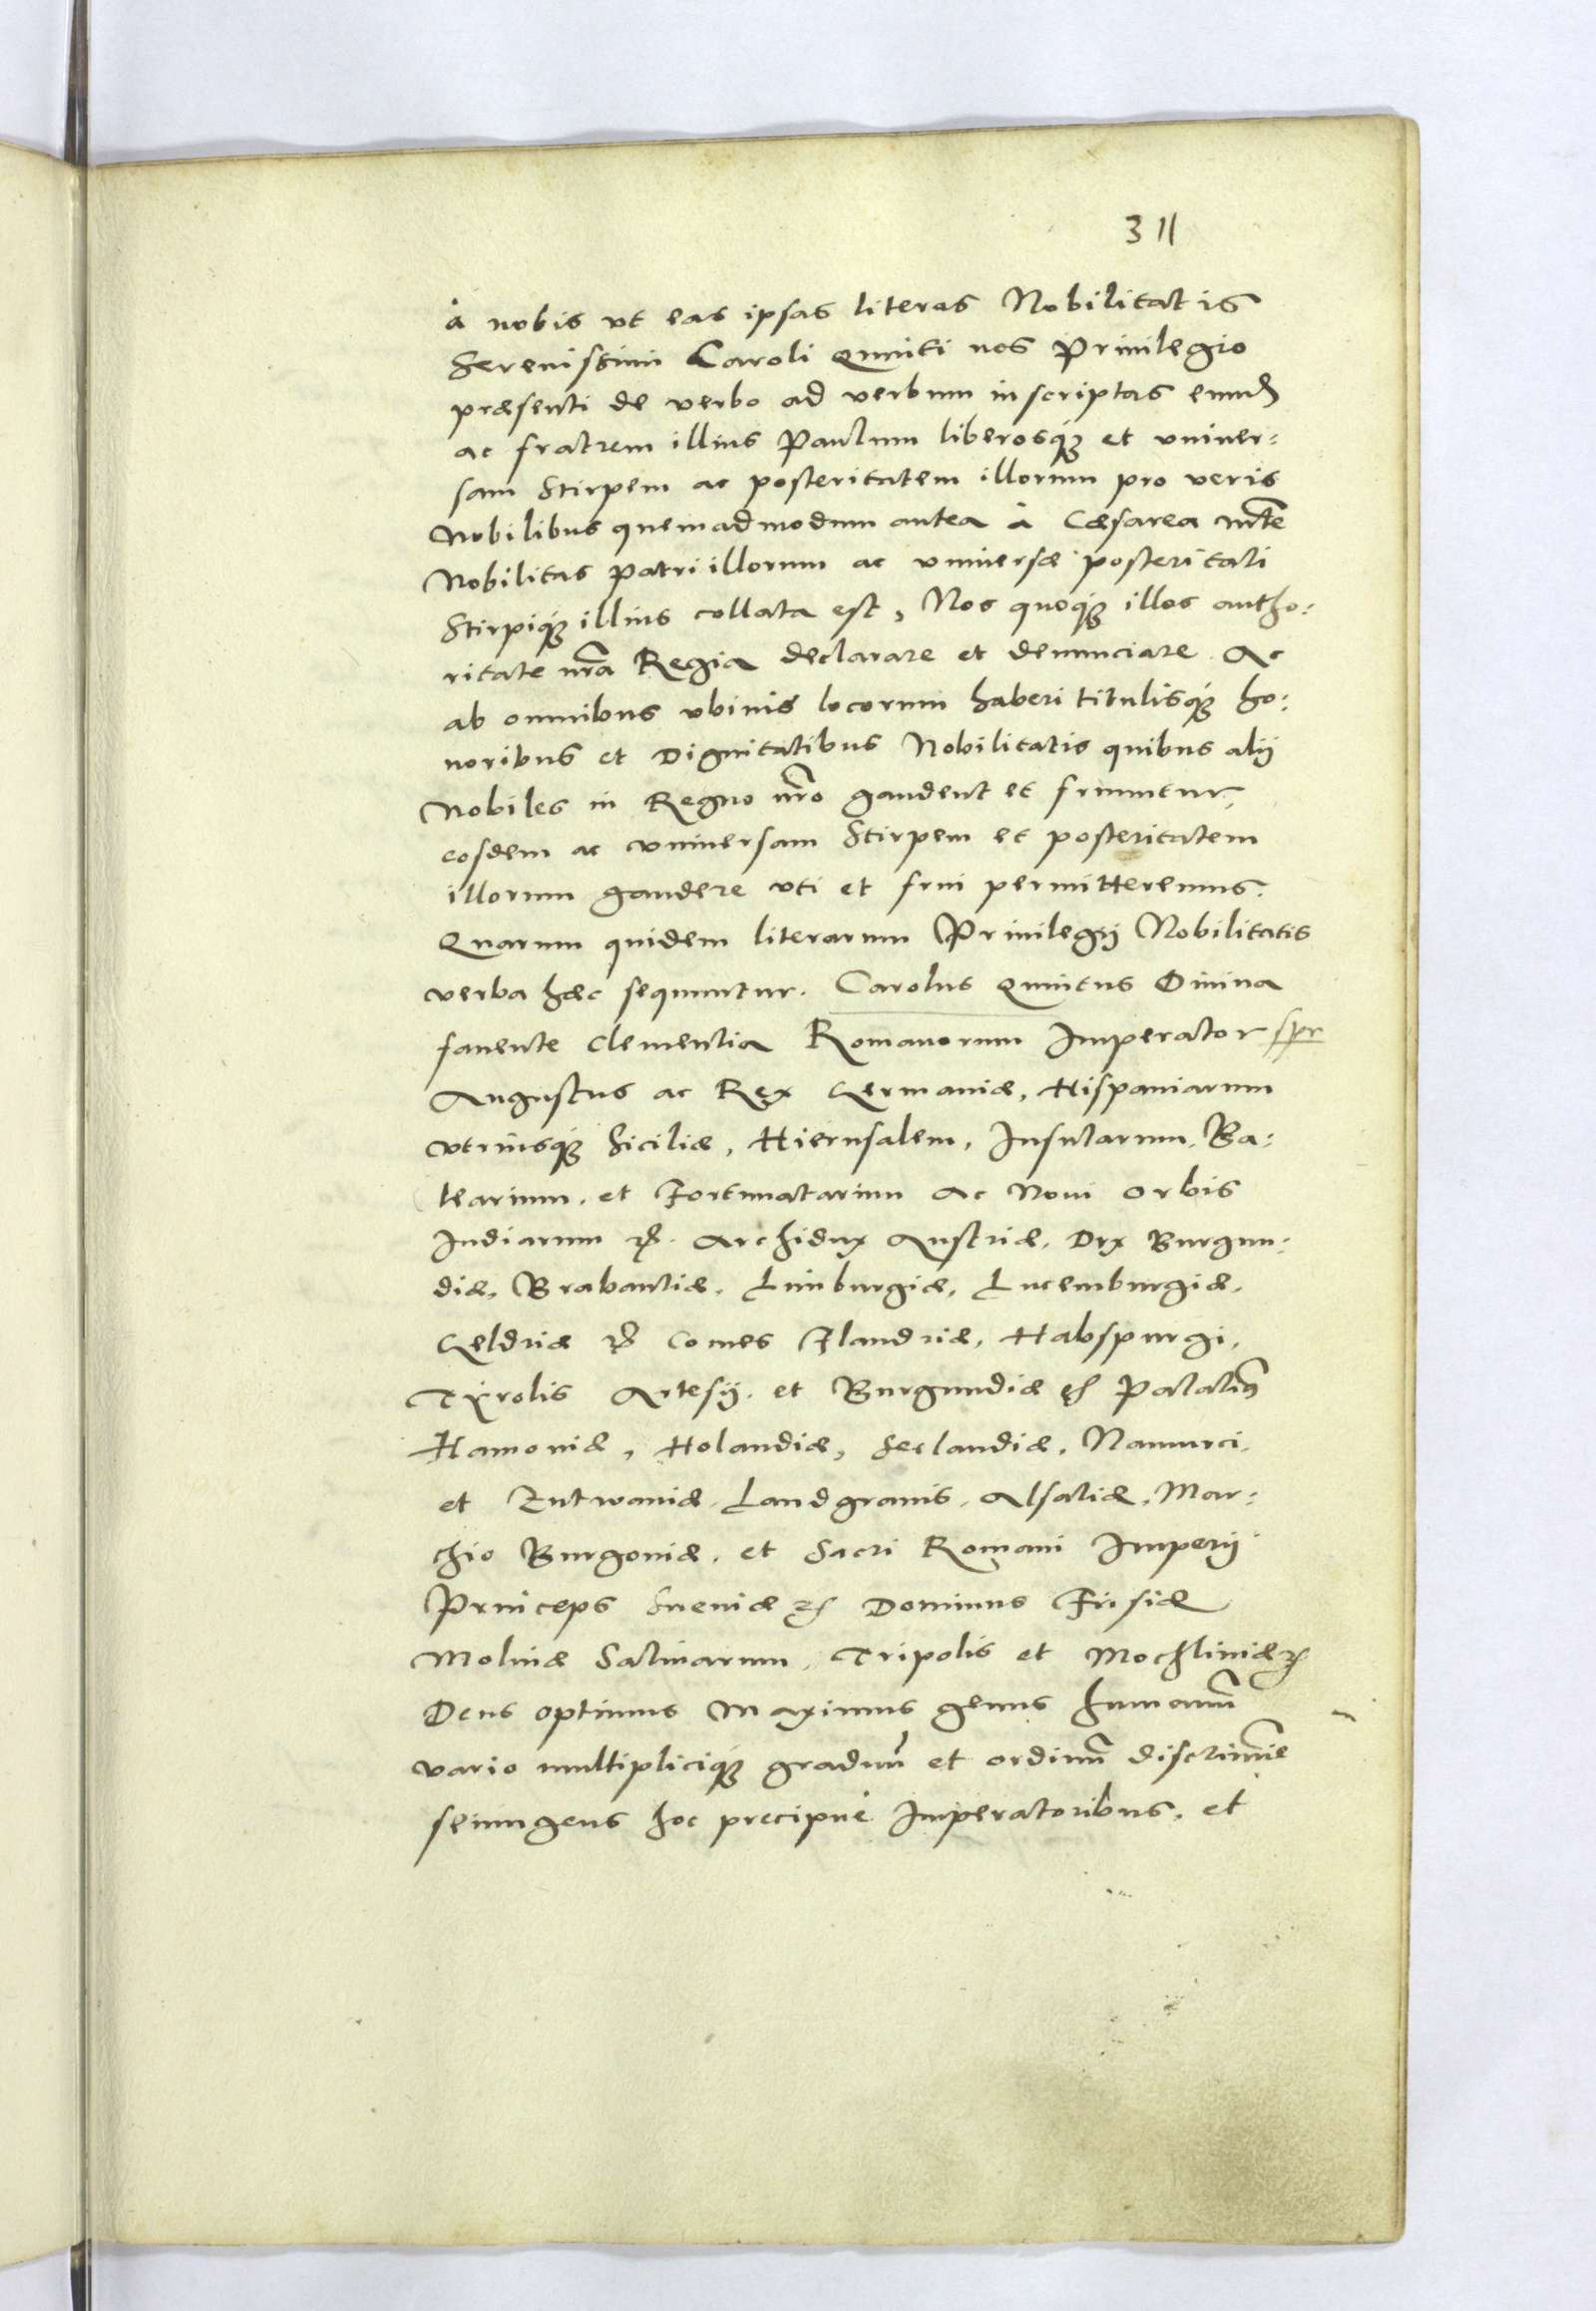 311
à nobis vt eas ipsas literas Nobilitatis
Serenissimi Caroli Quinti nos Priuilegio
præsenti de verbo ad verbum inscriptas eund
ac fratrem illius Paulum liberosq́ue et vniuer:
sam Stirpem ac posteritatem illorum pro veris
Nobilibus quemadmodum antea à Cæsarea mte
Nobilitas patri illorum ac vniuersæ posteritati
Stirpiq́ue illius collata est, Nos quoq́ue illos autho:
ritate nra Regia declarare et denunciare. Ac
ab omnibus vbiuis locorum haberi titulisq́ue ho:
noribus et Dignitatibus Nobilitatis quibus alij
Nobiles in Regno nro gaudent et fruuntur,
eosdem ac vniuersam Stirpem et posteritatem
illorum gaudere vti et frui permitteremus.
Quarum quidem literarum Priuilegij Nobilitatis
verba hæc sequuntur. Carolus Quintus Diuina
fauente Clementia Romanorum Imperator spr
Augustus ac Rex Germaniæ, Hispaniarum
vtriusq́ue Siciliæ, Hierusalem, Insularum, Ba:
learium, et Fortunatarum ac Noui orbis
Indiarum etc. Archidux Austriæ, Dux Burgun:
diæ, Brabantiæ, Limburgiæ, Lucemburgiæ,
Geldriæ etc Comes Flandriæ, Habspurgi,
Tÿrolis Artesij. et Burgundiæ etc Palatin
Hamoniæ, Holandiæ, Seelandiæ, Namurci,
et Zutwaniæ, Landgrauis, Alsatiæ, Mar:
chio Burgoniæ, et Sacri Romani Imperij
Princeps Sueuiæ etc Dominus Frisiæ
Molinæ Salinarum, Tripolis et Mochliniæ etc
Deus optimus Maximus genus humanum
vario multipliciq́ue graduum et ordinum discrimine
seiungens hoc precipuè Imperatoribus, et